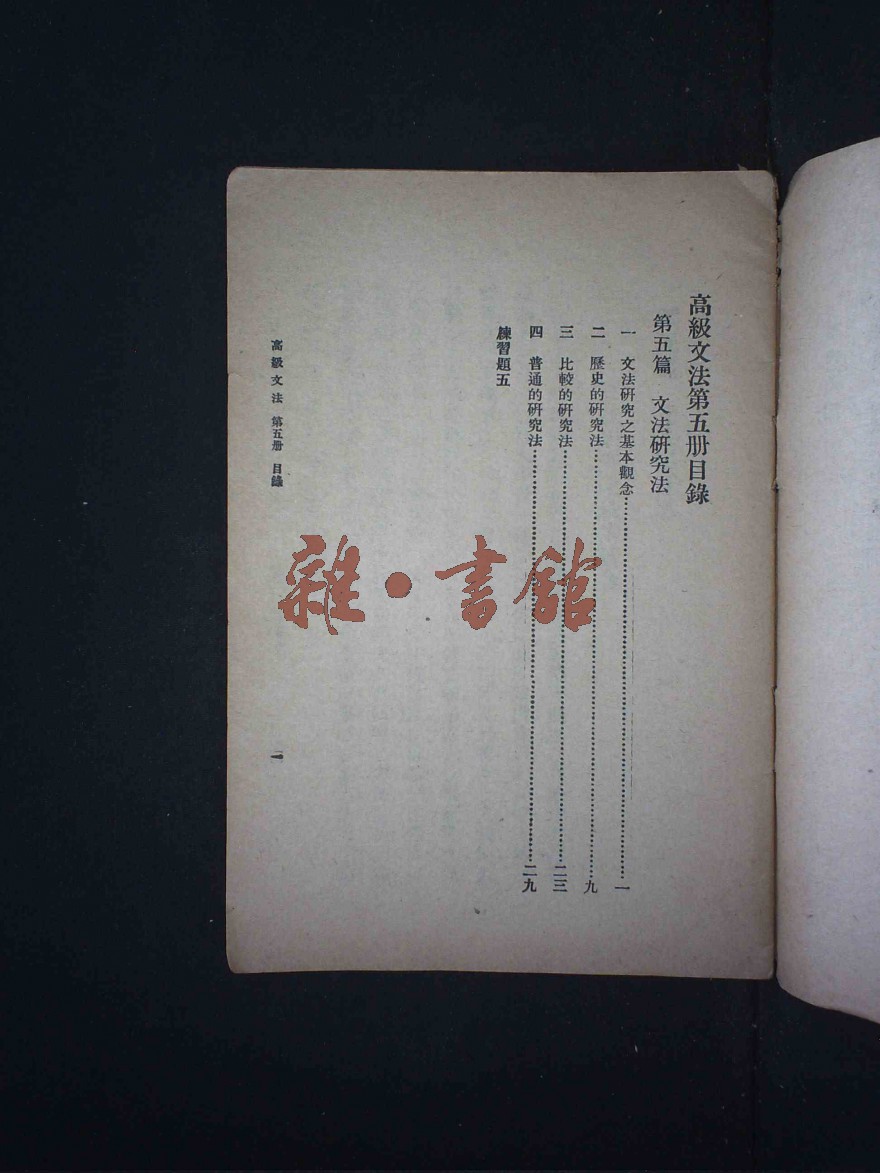 高級文法第五册目錄
第五篇　文法研究法
一　文法研究之基本觀念……………………一
二　歷史的研究法……………………九
三　比較的研究法……………………二三
四　普通的研究法……………………二九
練習題五
高級文法　第五册　目錄
一
雜·書館